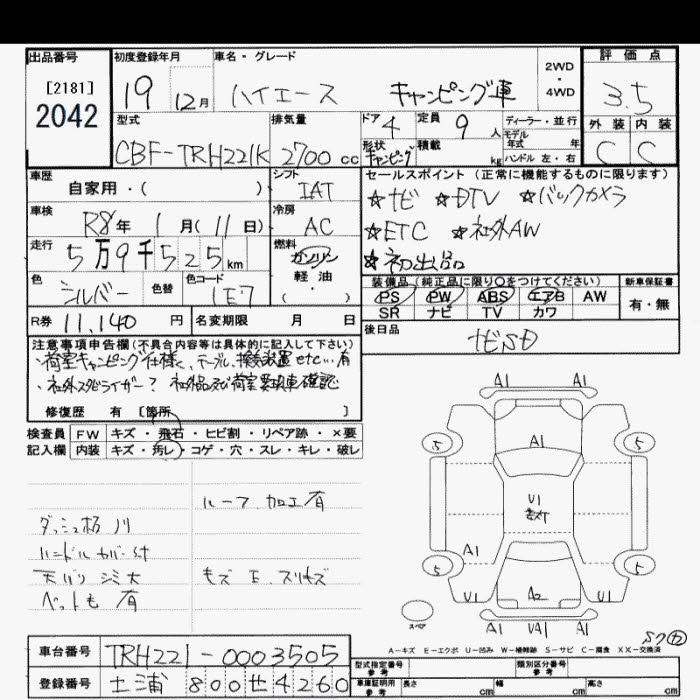 出品番号 初度登録年月 車名・グレード 2WD・4WD 評価点
[2181] 2042
19 12月 ハイエース キャンピング車 3.5
型式 排気量 ドア 定員 ディーラー・並行 外装 内装
CBF-TRH221K 2700cc 4 9人 モデル年式 年 C C
形状 キャンピング 積載 kg ハンドル 左・右
車歴 自家用・( ) シフト IAT セールスポイント (正常に機能するものに限ります)
車検 R8年1月(11日) 冷房 AC ☆ナビ ☆DTV ☆バックカメラ
走行 5万9千525km 燃料 ガソリン・軽油・( ) ☆ETC ☆社外AW
☆初出品
色 シルバー 色替 色コード 1E7
装備品 (純正品に限り○をつけてください) 新車保証書
PS PW ABS エアB AW 有・無
SR ナビ TV カワ
R券 11,140円 名変期限 月 日
後日品 ナビSD
注意事項申告欄(不具合内容等は具体的に記入して下さい)
・荷室キャンピング仕様く、テーブル、換気装置etc…有
・社外スタビライザー? 社外品及び荷室 車確認
修復歴 有 [箇所 ]
検査員 FW キズ・飛石・ヒビ割・リペア跡・×要
記入欄 内装 キズ・汚レ・コゲ・穴・スレ・キレ・破レ
ルーフ 加工有
ダッシュ板 川
ハンドル カバー付
天バリ シミ大
モズ E、スリキズ
ベットも 有
A1 A1
5 5
A1
U1
A1
5 5
U1 A2 U1
スペア
A1 UA1 U1
A-キズ E-エクボ U-凹み W-補修跡 S-サビ C-腐食 XX-交換済
車台番号 TRH221-0003505
型式指定番号 参考 類別区分番号 参考
登録番号 土浦 800せ4260
車庫証明用 参考 長さ cm 幅 cm 高さ cm